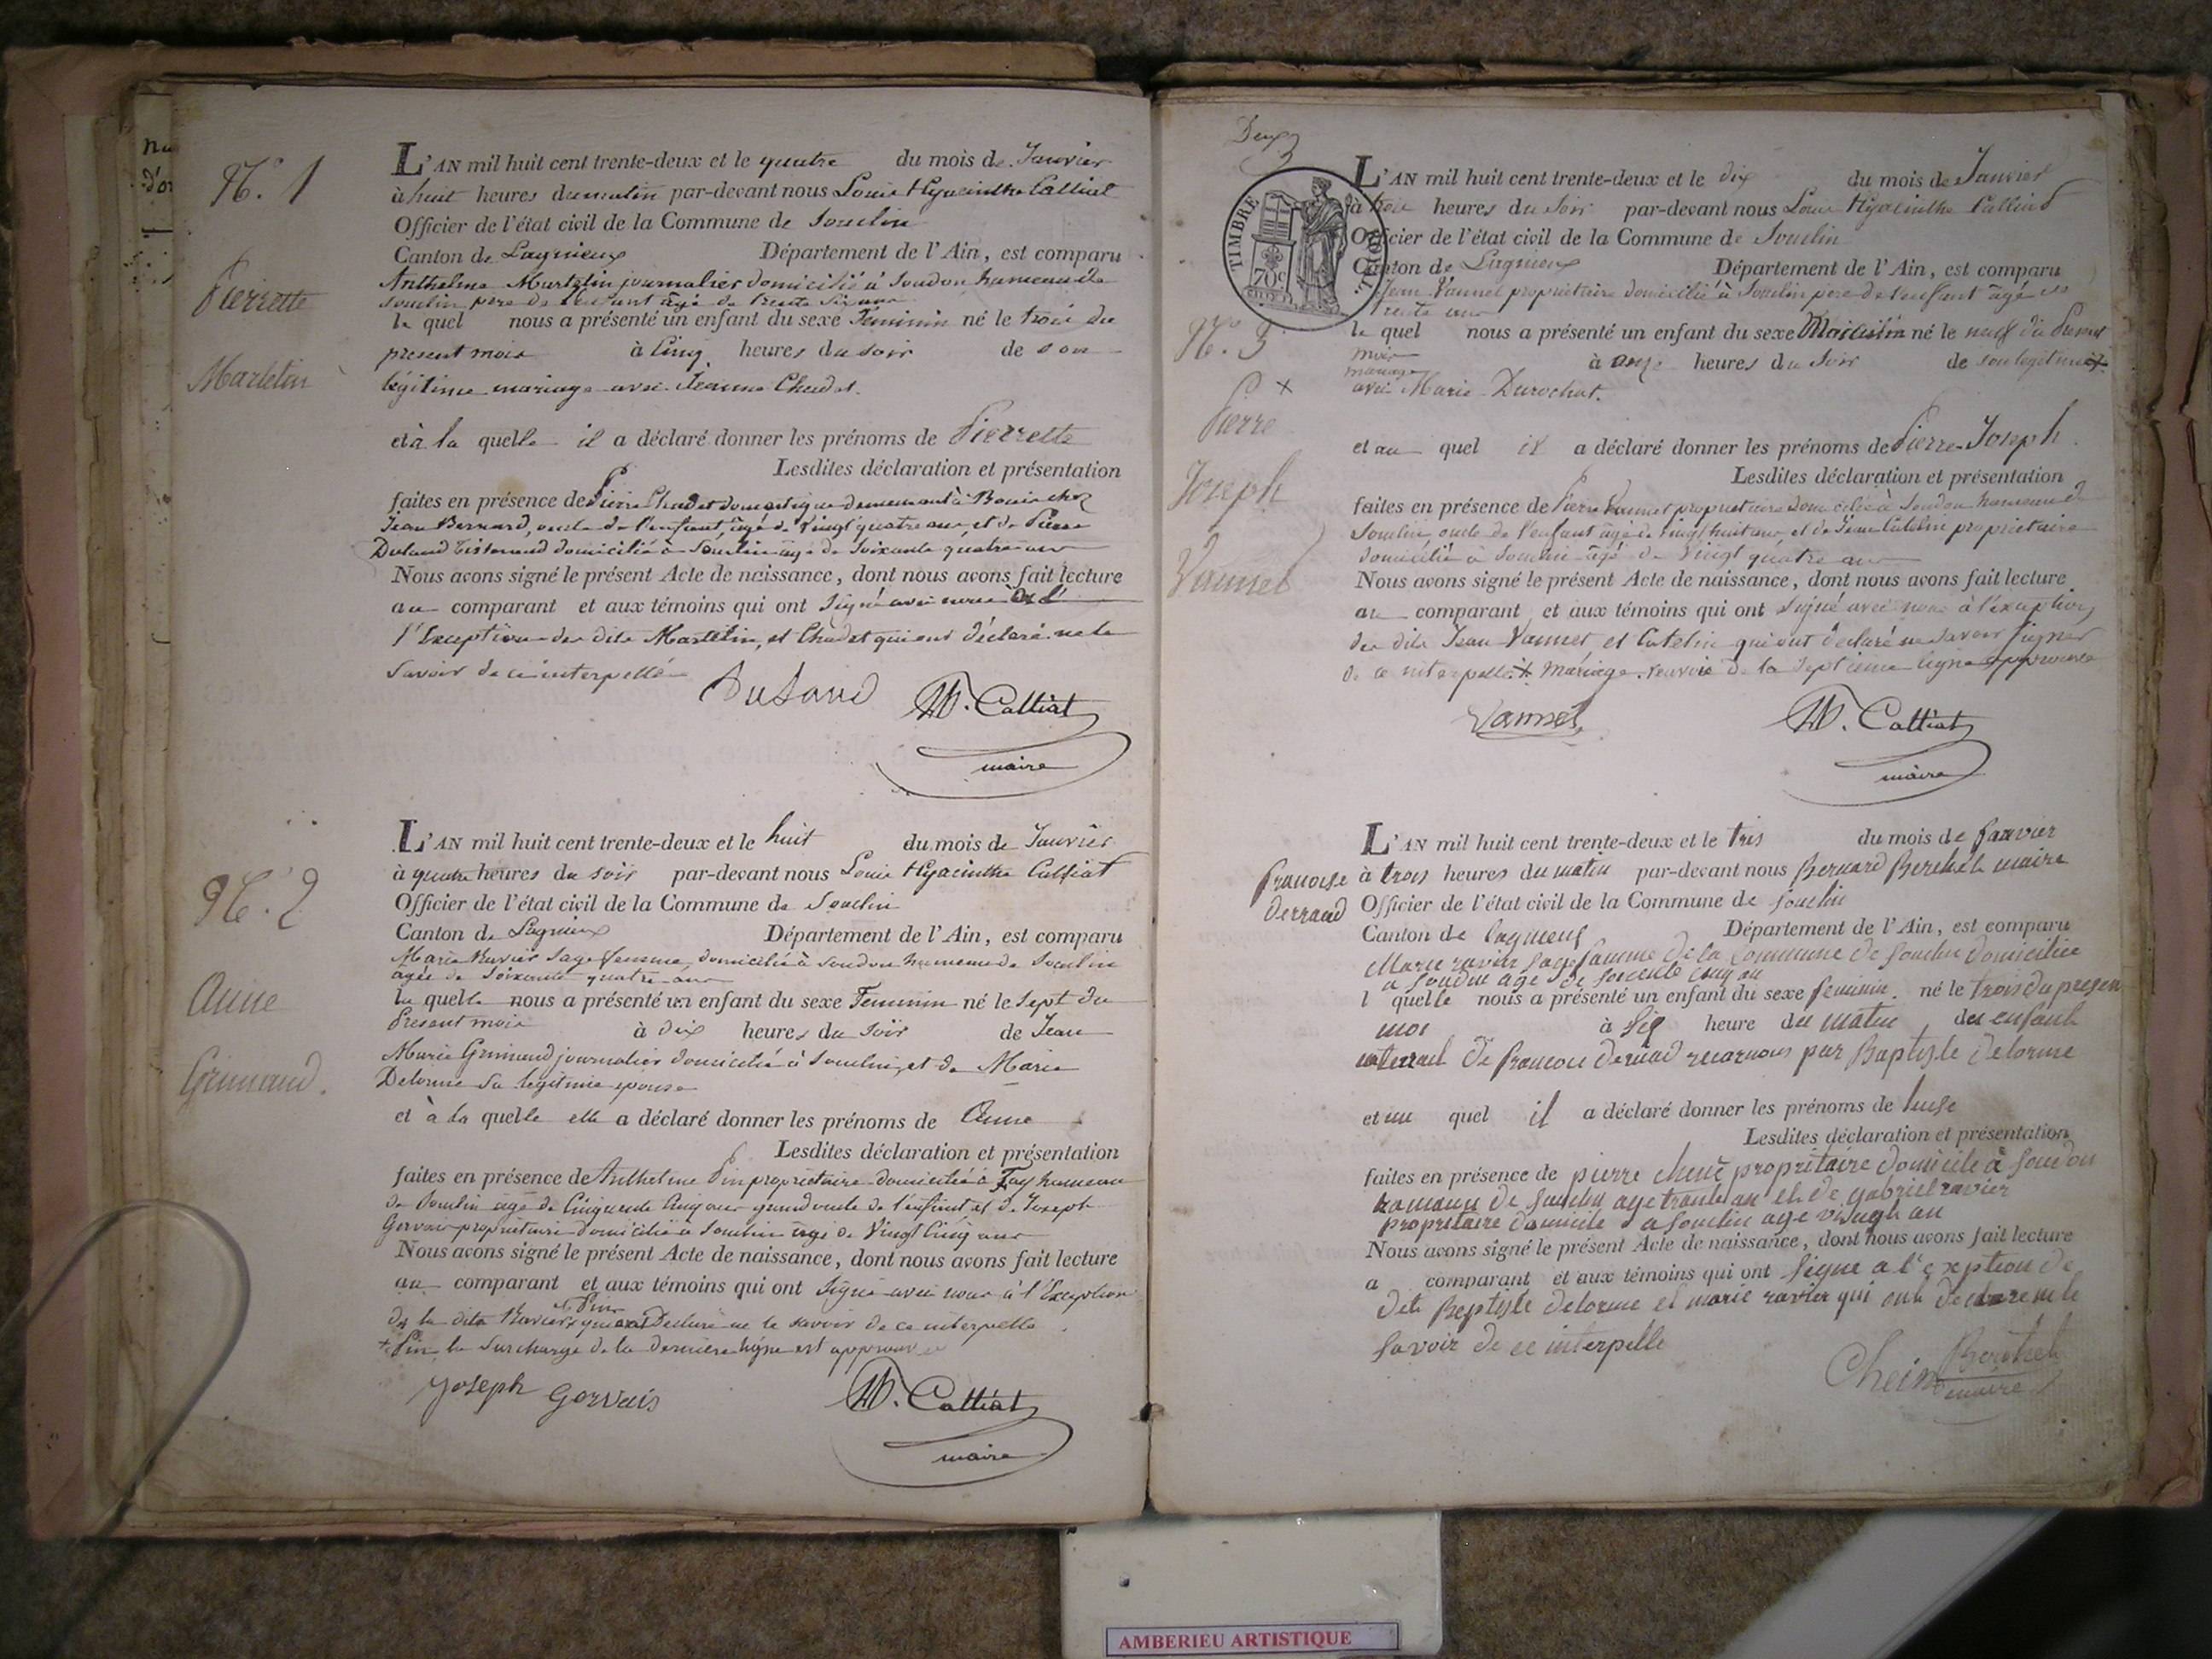 nu
d'or
N.º 1
Pierrette
Martelin
L'AN mil huit cent trente-deux et le quatre du mois de Janvier
à huit heures du matin par-devant nous Louis Hyacinthe Calliat
Officier de l'état civil de la Commune de Souclin
Canton de Lagnieux Département de l'Ain, est comparu
Anthelme Martelin journalier domicilié à Soudon hameau de
Souclin père de l'enfant âgé de trente
le quel nous a présenté un enfant du sexe Féminin né le trois du
présent mois à cinq heures du soir de son
légitime mariage avec Jeanne Chudet.
et à la quelle il a déclaré donner les prénoms de Pierrette
Lesdites déclaration et présentation
faites en présence de Pierre Chudet domestique demeurant à chez
Jean Bernard, oncle de l'enfant, âgé de vingt quatre ans et de Pierre
Dufaud Tisserand domicilié à Souclin âgé de soixante quatre ans
Nous avons signé le présent Acte de naissance, dont nous avons fait lecture
au comparant et aux témoins qui ont signé avec nous
l'Exception des dits Martelin, et Chudet qui ont déclaré ne le
savoir de ce interpellé
M. Calliat
maire
N.º 2
Anne
Grimaud.
L'AN mil huit cent trente-deux et le huit du mois de Janvier
à quatre heures du soir par-devant nous Louis Hyacinthe Calliat
Officier de l'état civil de la Commune de Souclin
Canton de Lagnieux Département de l'Ain, est comparu
Marie Ravier Sage femme, domiciliée à Soudon hameau de Souclin
agée de soixante quatre ans
la quelle nous a présenté un enfant du sexe Feminin né le sept du
Present mois à dix heures du soir de Jean
Marie Grimaud journalier domicilié à Souclin, et de Marie
Delorme sa légitime epouse
et à la quelle elle a déclaré donner les prénoms de Anne
Lesdites déclaration et présentation
faites en présence de Anthelme Pin propriétaire domicilié à Fay hameau
de Souclin âgé de Cinquante Cinq ans grand oncle de l'enfant et de Joseph
Gervais propriétaire domicilié à Souclin âgé de Vingt Cinq ans
Nous avons signé le présent Acte de naissance, dont nous avons fait lecture
au comparant et aux témoins qui ont signé avec nous à l'Exception
de la dite Ravier et Pin qui ont Déclaré ne le savoir de ce interpellé
+ Pin la surcharge de la dernière ligne est approuvée
Joseph Gervais
M. Calliat
maire
Deux
TIMBRE ROYAL
70 c
N.º 3
P +
Pierre
Joseph
Vannet
L'AN mil huit cent trente-deux et le dix du mois de Janvier
à trois heures du soir par-devant nous Louis Hyacinthe Calliat
Officier de l'état civil de la Commune de Souclin
Canton de Lagnieux Département de l'Ain, est comparu
Jean Vannet propriétaire domicilié à Souclin père de l'enfant âgé de
trente ans
le quel nous a présenté un enfant du sexe Masculin né le neuf du Présent
mois à onze heures du soir de son légitime +
mariage
avec Marie Durochat.
et au quel il a déclaré donner les prénoms de Pierre-Joseph
Lesdites déclaration et présentation
faites en présence de Pierre Vannet propriétaire domicilié à Soudon hameau de
Souclin, oncle de l'enfant âgé de vingt huit ans, et de Jean Catelin propriétaire
domicilié à Souclin âgé de Vingt quatre ans
Nous avons signé le présent Acte de naissance, dont nous avons fait lecture
au comparant et aux témoins qui ont signé avec nous à l'exception
des dits Jean Vannet et Catelin qui ont déclaré ne savoir signer
de ce interpellé + Mariage renvoie de la septième ligne approuvée
Vannet
M. Calliat
maire
françoise
derraud
L'AN mil huit cent trente-deux et le tris du mois de Janvier
à trois heures du matin par-devant nous Bernard Berthet maire
Officier de l'état civil de la Commune de souclin
Canton de lagneus Département de l'Ain, est comparu
Marie ravier sage famme de la commune de souclin domiciliée
a soudon age de
l quelle nous a présenté un enfant du sexe feminin né le trois du presen
moi à six heure du matin, de enfant
de françoi par Baptiste delorme
et au quel il a déclaré donner les prénoms de
Lesdites déclaration et présentation
faites en présence de pierre chene propritaire domicile à soudon
hamaux de souclin age trante an et de gabriel ravier
propritaire domicile a souclin age an
Nous avons signé le présent Acte de naissance, dont nous avons fait lecture
a comparant et aux témoins qui ont signe a l'exption de
dite Baptiste delorme et marie ravier qui ont declare ne le
savoir de ce interpelle
Berthet
maire
AMBERIEU ARTISTIQUE